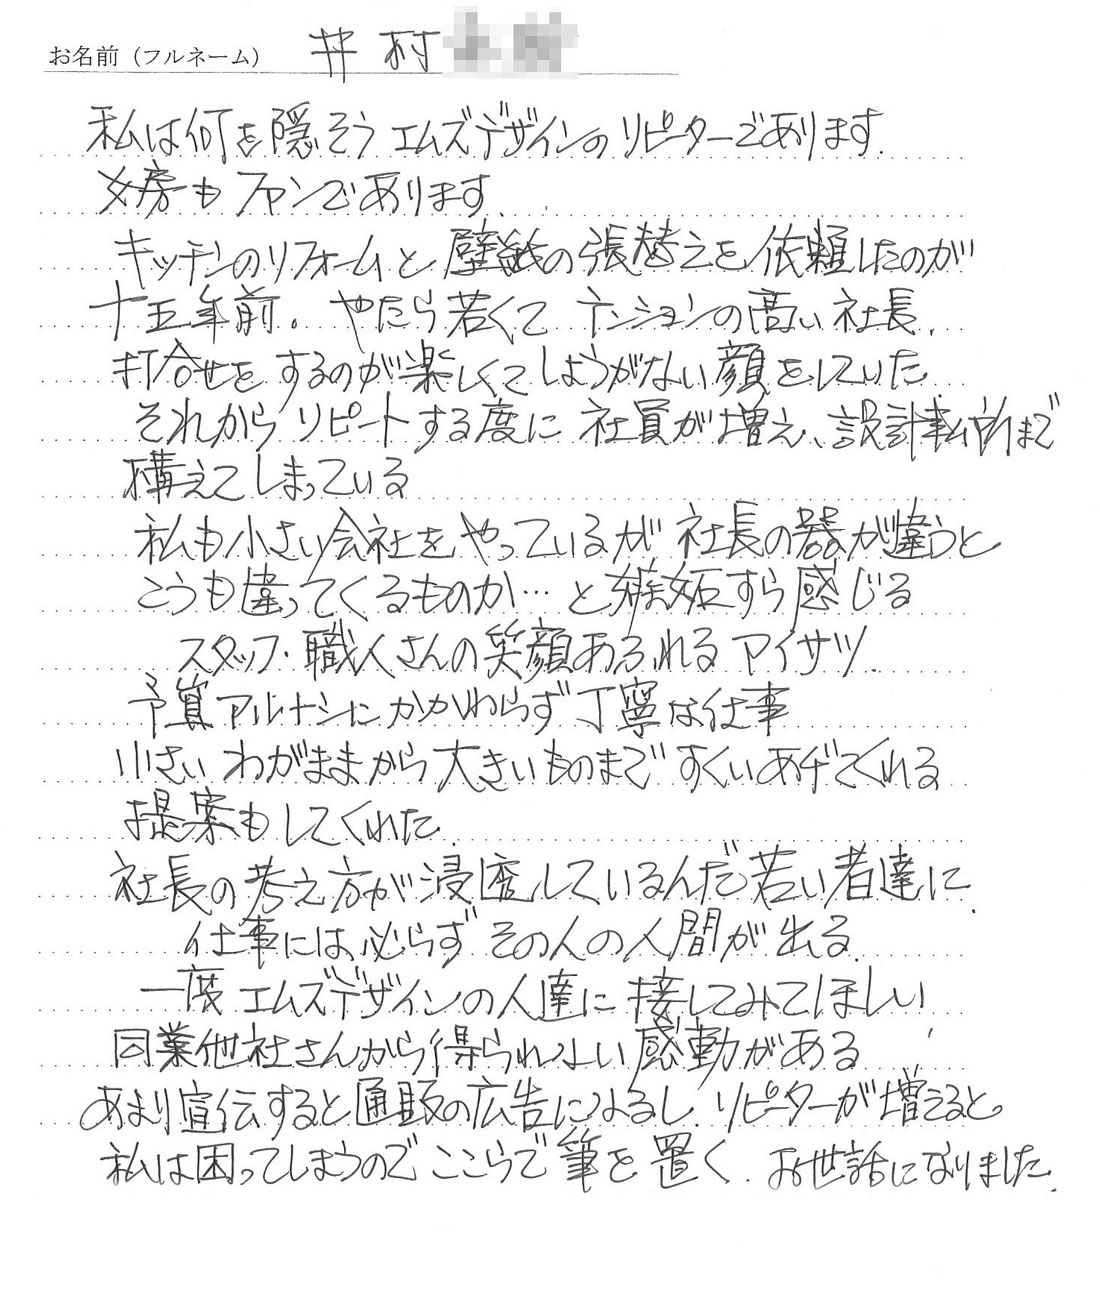 お名前（フルネーム） 井村
私は何を隠そう エムズデザインのリピーターであります.
女房もファンであります.
キッチンのリフォームと壁紙の張替えを依頼したのが
十五年前。やたら若くてテンションの高い社長.
打合せをするのが楽しくてしょうがない顔をしていた
それからリピートする度に社員が増え、設計事ム所まで
構えてしまっている
私も小さい会社をやっているが社長の器が違うと
こうも違ってくるものか…と嫉妬すら感じる
スタッフ・職人さんの笑顔あふれるアイサツ.
予算アルナシにかかわらず丁寧な仕事
小さいわがままから大きいものまですくいあげてくれる
提案もしてくれた.
社長の考え方が浸透しているんだ若い者達に.
仕事には必らずその人の人間が出る.
一度エムズデザインの人達に接してみてほしい
同業他社さんから得られない感動がある
あまり宣伝すると通販の広告になるし、リピーターが増えると
私は困ってしまうのでここらで筆を置く. お世話になりました.